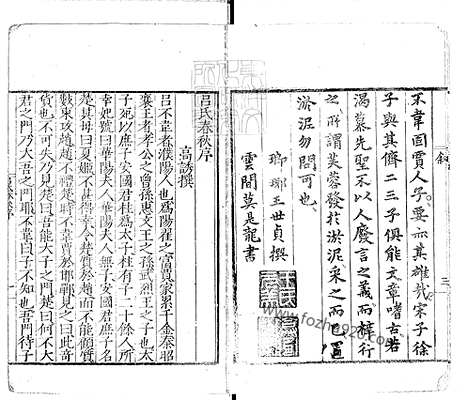 不韋固賈人子要亦其雄哉宋子徐
子與其儕二三子俱能文章嗜古若
渴慕先聖不以人廢言之義而梓行
之所謂芙蓉發於淤泥采之而已置
淤泥勿問可也
瑯琊王世貞撰
雲間莫是龍書
呂氏春秋序
高誘撰
呂不韋者濮陽人也為陽翟之富賈家累千金秦昭
襄王者孝公之曾孫惠文王之孫武烈王之子也太
子死以庶子安國君柱為太子柱有子二十餘人所
幸妃號曰華陽夫人無子安國君庶子名
楚其母曰夏姬不甚得幸令楚質於趙而不能顧質
數東攻趙趙不禮楚時不韋賈於邯鄲見之曰此奇
貨也不可失乃見楚曰吾能大子之門楚曰何不大
君之門乃大吾之門邪不韋曰子不知也吾門待子
www.fozhe920.com